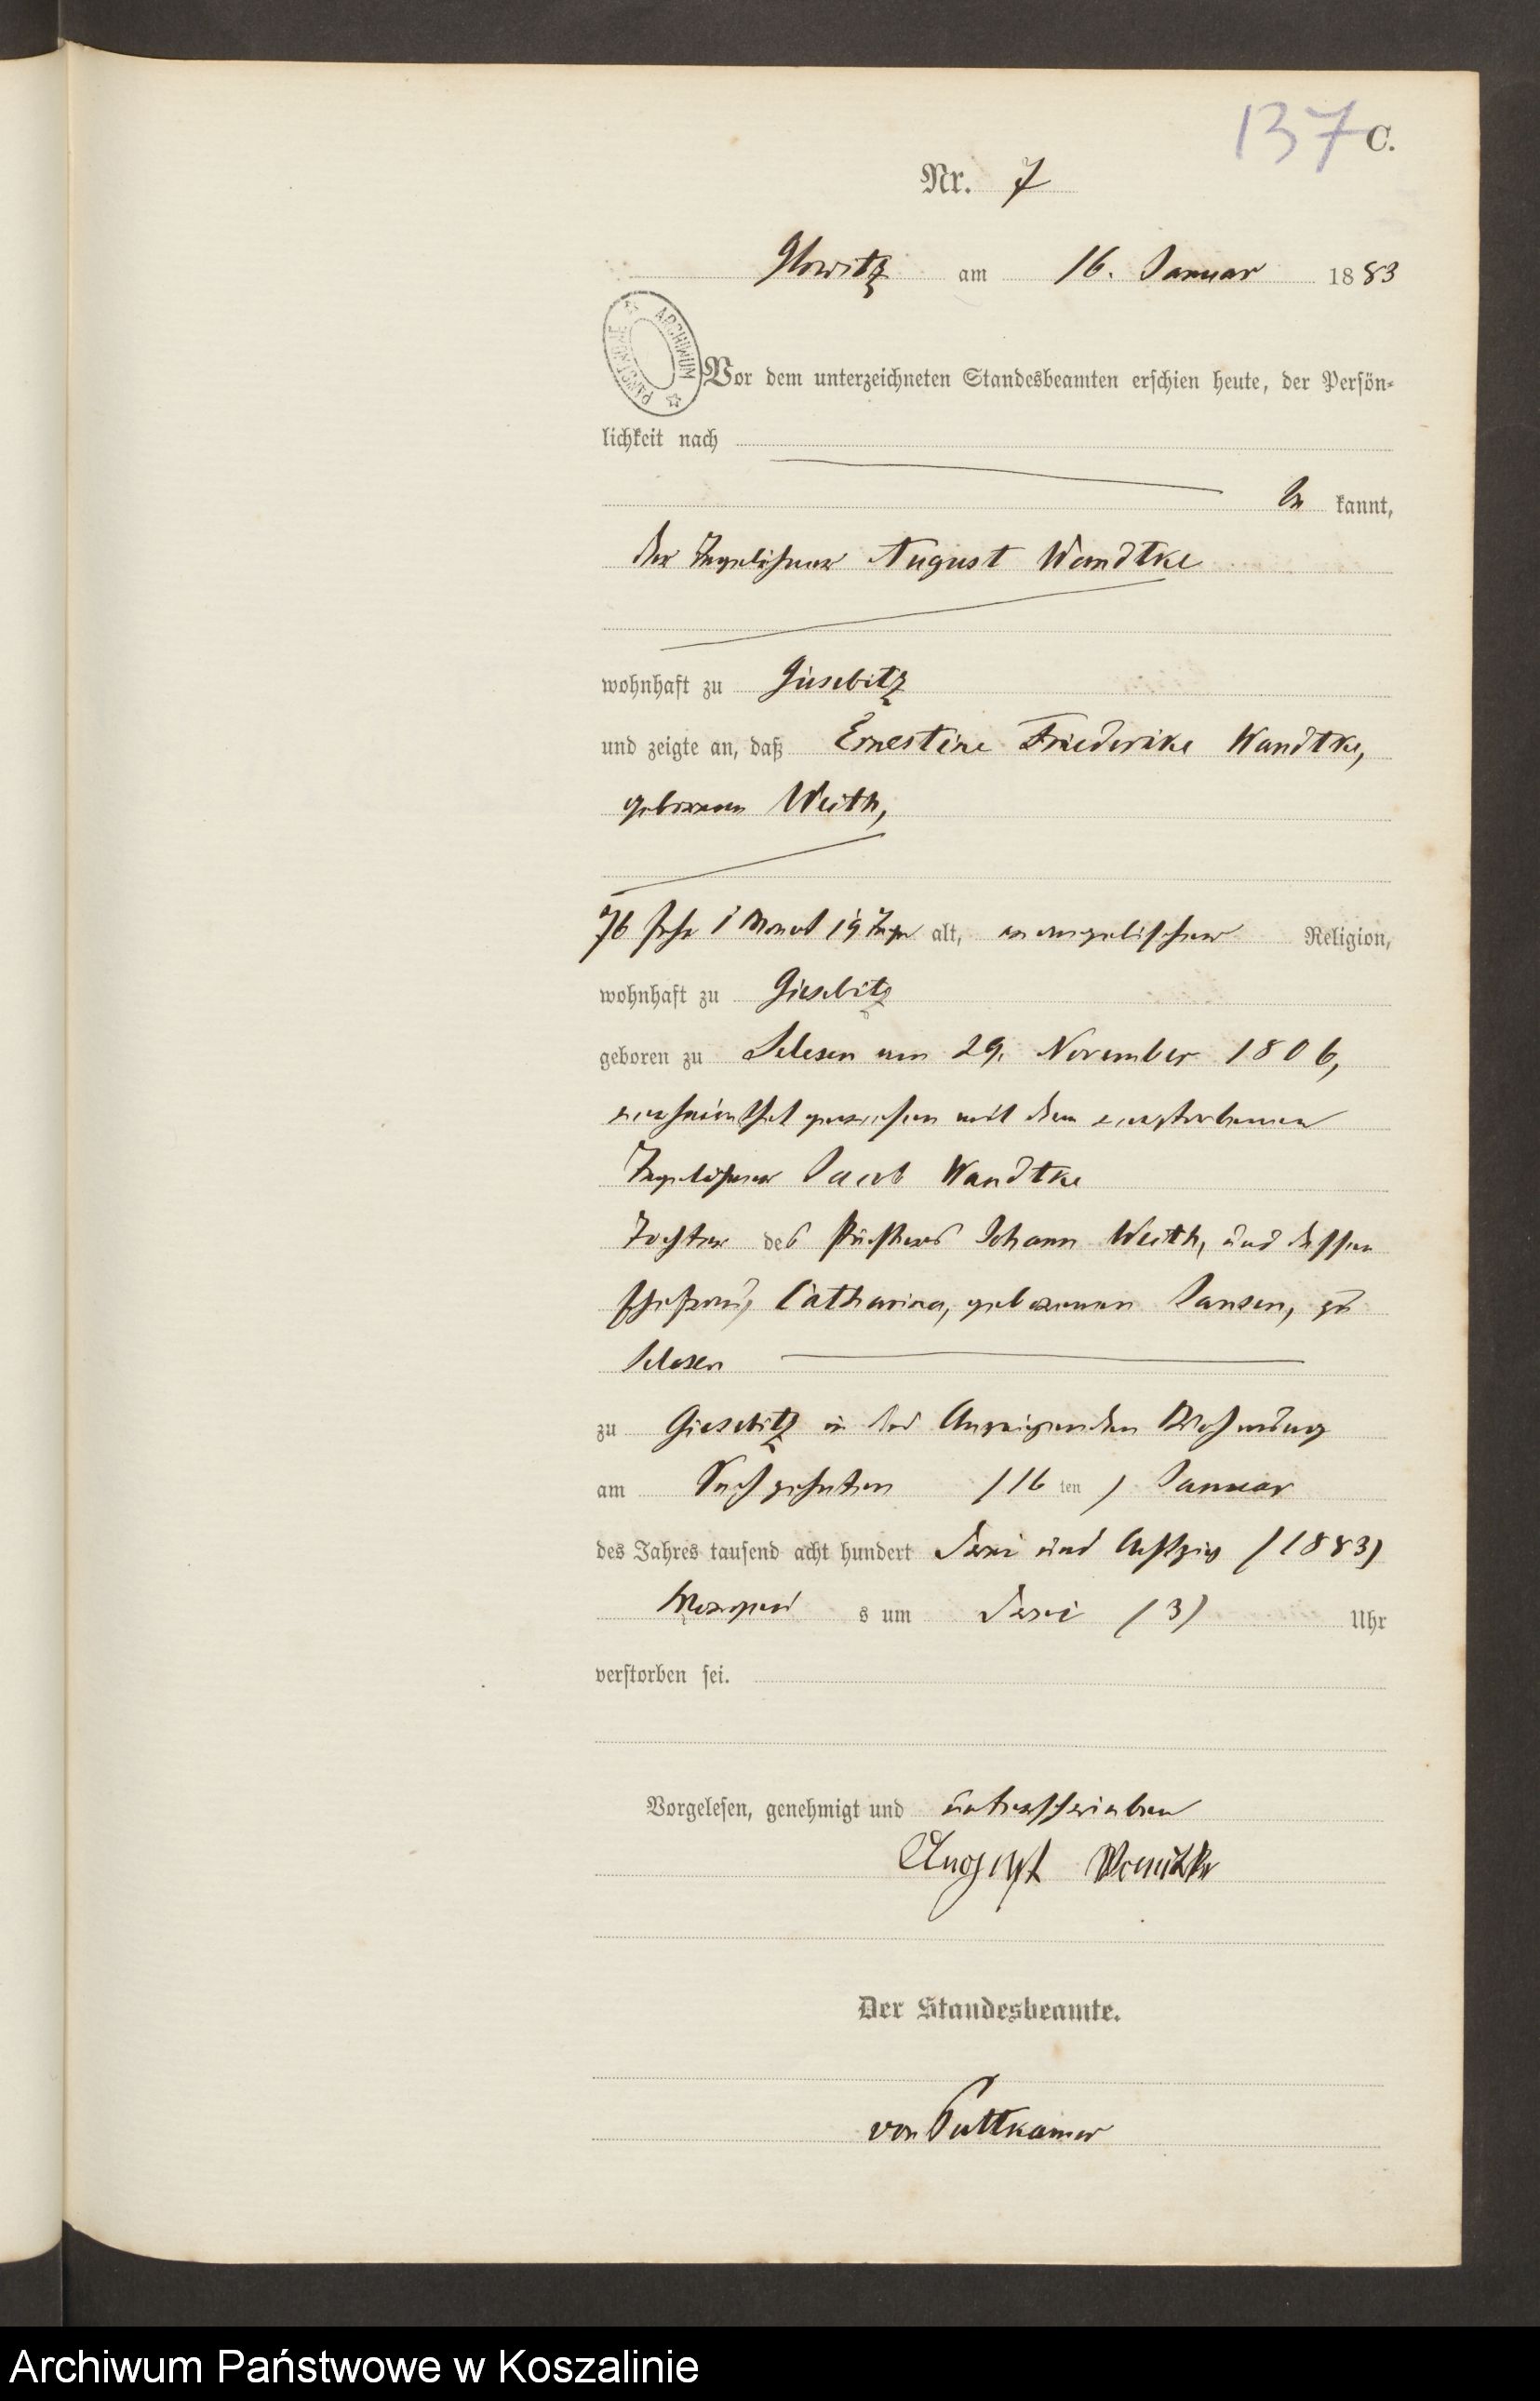 137 C.
Nr. 7
Glowitz am 16. Januar 1883
ARCHIWUM PAŃSTWOWE
Vor dem unterzeichneten Standesbeamten erschien heute, der Persön-
lichkeit nach
be kannt,
der Tagelöhner August Wandtke
wohnhaft zu Giesebitz
und zeigte an, daß Ernestine Friederike Wandtke,
geborenen Weith,
76 Jahr 1 Monat 19 Tage alt, evangelischer Religion,
wohnhaft zu Giesebitz
geboren zu Selesen am 29. November 1806,
verheirathet gewesen mit dem verstorbenen
Tagelöhner Jacob Wandtke
Tochter des Johann Weith, und dessen
Ehefrau, Catharina, geborenen Jansen, zu
Selesen
zu Giesebitz in des Anzeigenden Wohnung
am Sechzehnten (16 ten) Januar
des Jahres tausend acht hundert drei und Achtzig (1883)
Morgens s um drei (3) Uhr
verstorben sei.
Vorgelesen, genehmigt und unterschrieben
August Wandtke
Der Standesbeamte.
von Puttkamer
Archiwum Państwowe w Koszalinie